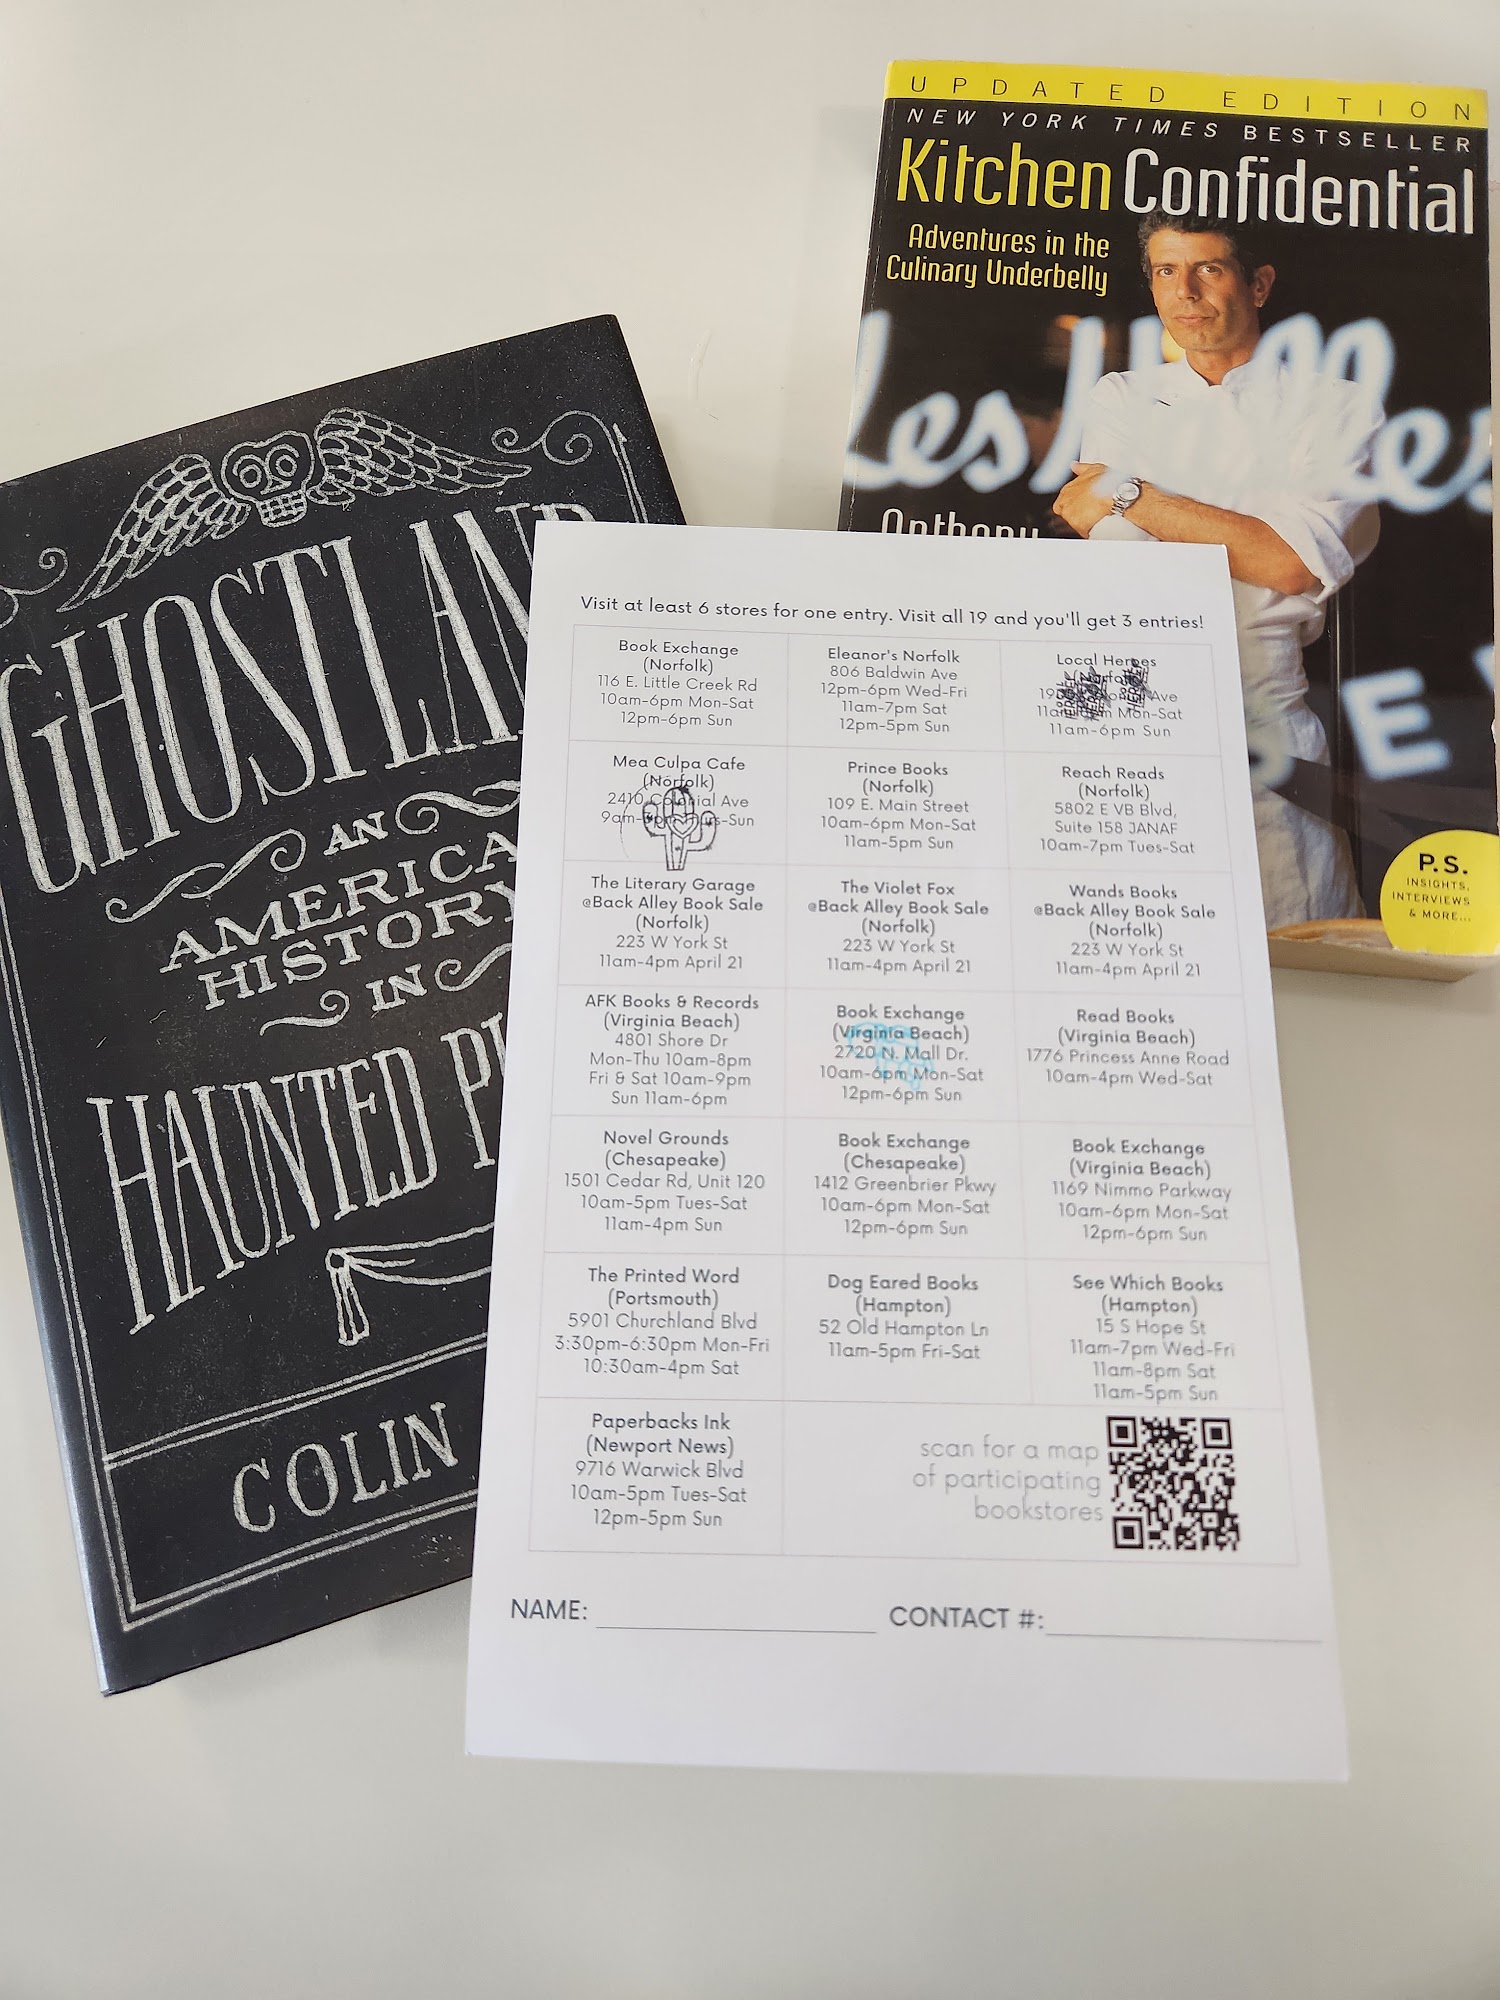 UPDATED EDITION
NEW YORK TIMES BESTSELLER
Kitchen Confidential
Adventures in the
Culinary Underbelly
Les Halles
Anthony
P.S.
INSIGHTS,
INTERVIEWS
& MORE...
GHOSTLAND
AN
AMERICA
HISTORY
IN
HAUNTED PL
COLIN
Visit at least 6 stores for one entry. Visit all 19 and you'll get 3 entries!
Book Exchange
(Norfolk)
116 E. Little Creek Rd
10am-6pm Mon-Sat
12pm-6pm Sun
Eleanor's Norfolk
806 Baldwin Ave
12pm-6pm Wed-Fri
11am-7pm Sat
12pm-5pm Sun
Local Heroes
(Norfolk)
Ave
Mon-Sat
11am-6pm Sun
Mea Culpa Cafe
(Norfolk)
2410 Colonial Ave
Prince Books
(Norfolk)
109 E. Main Street
10am-6pm Mon-Sat
11am-5pm Sun
Reach Reads
(Norfolk)
5802 E VB Blvd,
Suite 158 JANAF
10am-7pm Tues-Sat
The Literary Garage
@Back Alley Book Sale
(Norfolk)
223 W York St
11am-4pm April 21
The Violet Fox
@Back Alley Book Sale
(Norfolk)
223 W York St
11am-4pm April 21
Wands Books
@Back Alley Book Sale
(Norfolk)
223 W York St
11am-4pm April 21
AFK Books & Records
(Virginia Beach)
4801 Shore Dr
Mon-Thu 10am-8pm
Fri & Sat 10am-9pm
Sun 11am-6pm
Book Exchange
(Virginia Beach)
2720 N. Mall Dr.
10am-6pm Mon-Sat
12pm-6pm Sun
Read Books
(Virginia Beach)
1776 Princess Anne Road
10am-4pm Wed-Sat
Novel Grounds
(Chesapeake)
1501 Cedar Rd, Unit 120
10am-5pm Tues-Sat
11am-4pm Sun
Book Exchange
(Chesapeake)
1412 Greenbrier Pkwy
10am-6pm Mon-Sat
12pm-6pm Sun
Book Exchange
(Virginia Beach)
1169 Nimmo Parkway
10am-6pm Mon-Sat
12pm-6pm Sun
The Printed Word
(Portsmouth)
5901 Churchland Blvd
3:30pm-6:30pm Mon-Fri
10:30am-4pm Sat
Dog Eared Books
(Hampton)
52 Old Hampton Ln
11am-5pm Fri-Sat
See Which Books
(Hampton)
15 S Hope St
11am-7pm Wed-Fri
11am-8pm Sat
11am-5pm Sun
Paperbacks Ink
(Newport News)
9716 Warwick Blvd
10am-5pm Tues-Sat
12pm-5pm Sun
scan for a map
of participating
bookstores
NAME:
CONTACT #: